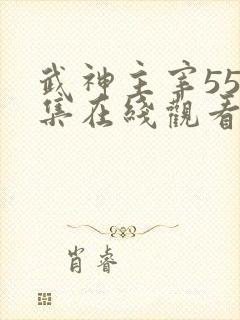 武神主宰55
集在线觀看
肖睿